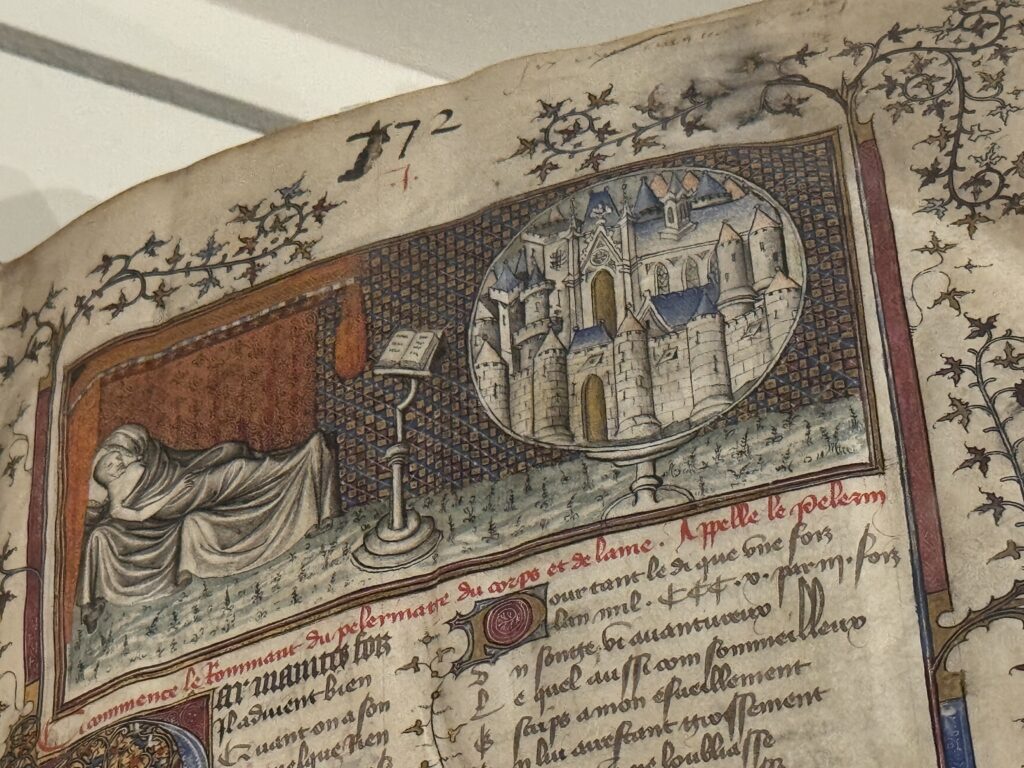 772
commence le Rommant du pelerinage du corps et de lame . Appelle le pelerin
ar maintes fois
Il advient bien
Quant on a son
quelque Rien
Pour tant le di que vne fois
Lan mil . CCC . v . par iij . fois
n songe vi auantureux
Le quel aussi com sommeilleux
scrips a mon esueillement
n lui arrestant grossement
ne loubliasse